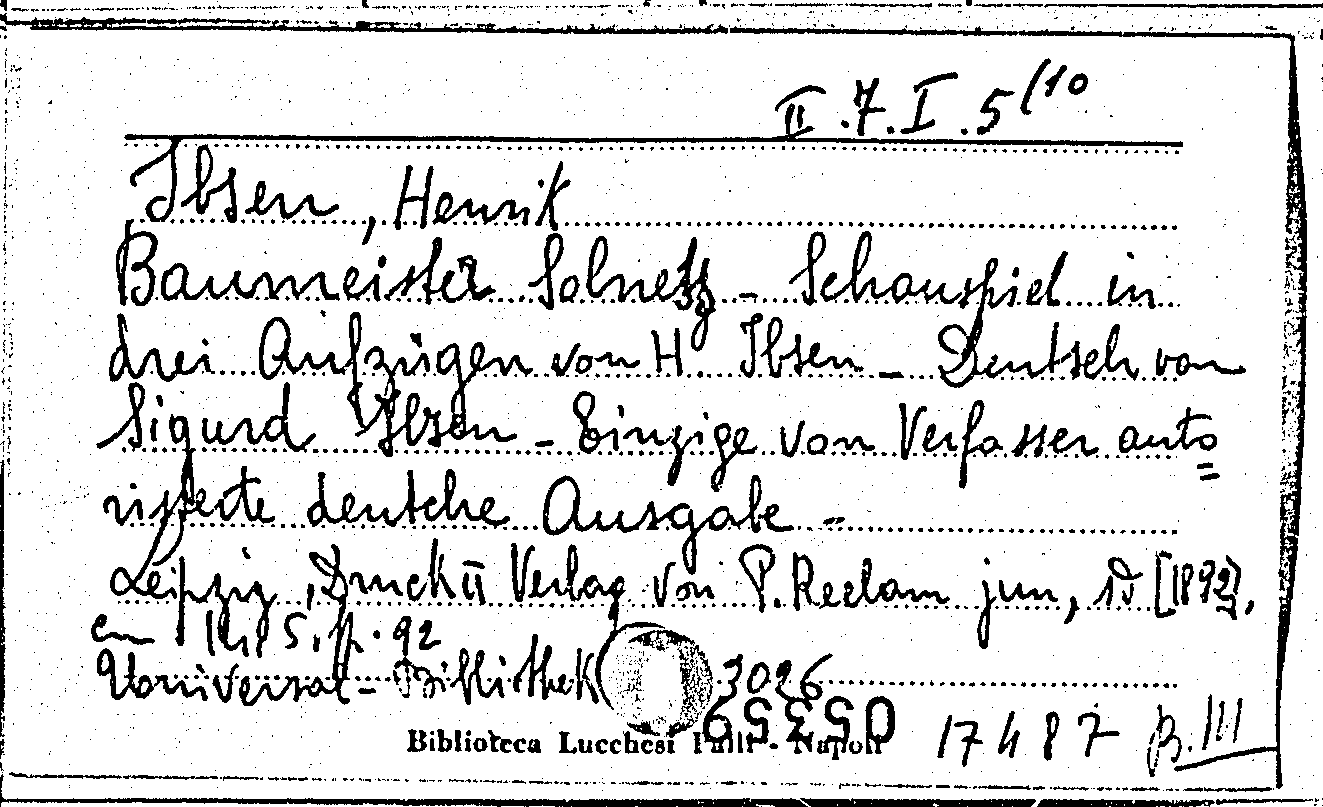 II.7.I.5(10
Ibsen, Henrik
Baumeister Solness - Schauspiel in
drei Aufzügen von H. Ibsen - Deutsch von
Sigurd Ibsen - Einzige von Verfasser auto=
risierte deutche Ausgabe -
Leipzig, Druck u Verlag von P. Reclam jun, [1892],
cm 14,5, p. 92
Universal-Bibliothek 3026
05359
Biblioteca Lucchesi Palli - Napoli
17487 B.III